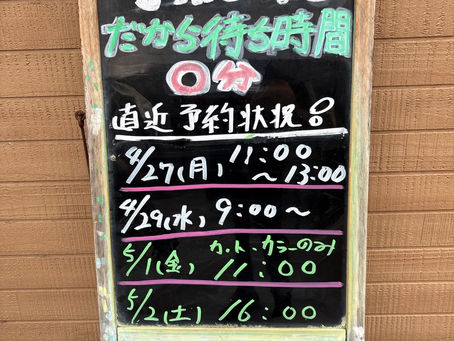 だから待ち時間
0分
直近予約状況
4/27(月) 11:00
～13:00
4/29(水) 9:00～
カット・カラーのみ
5/1(金) 11:00
5/2(土) 16:00